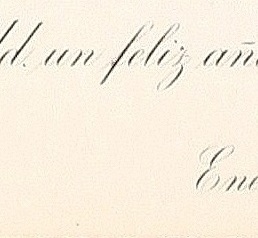 d. un feliz añ
Ene